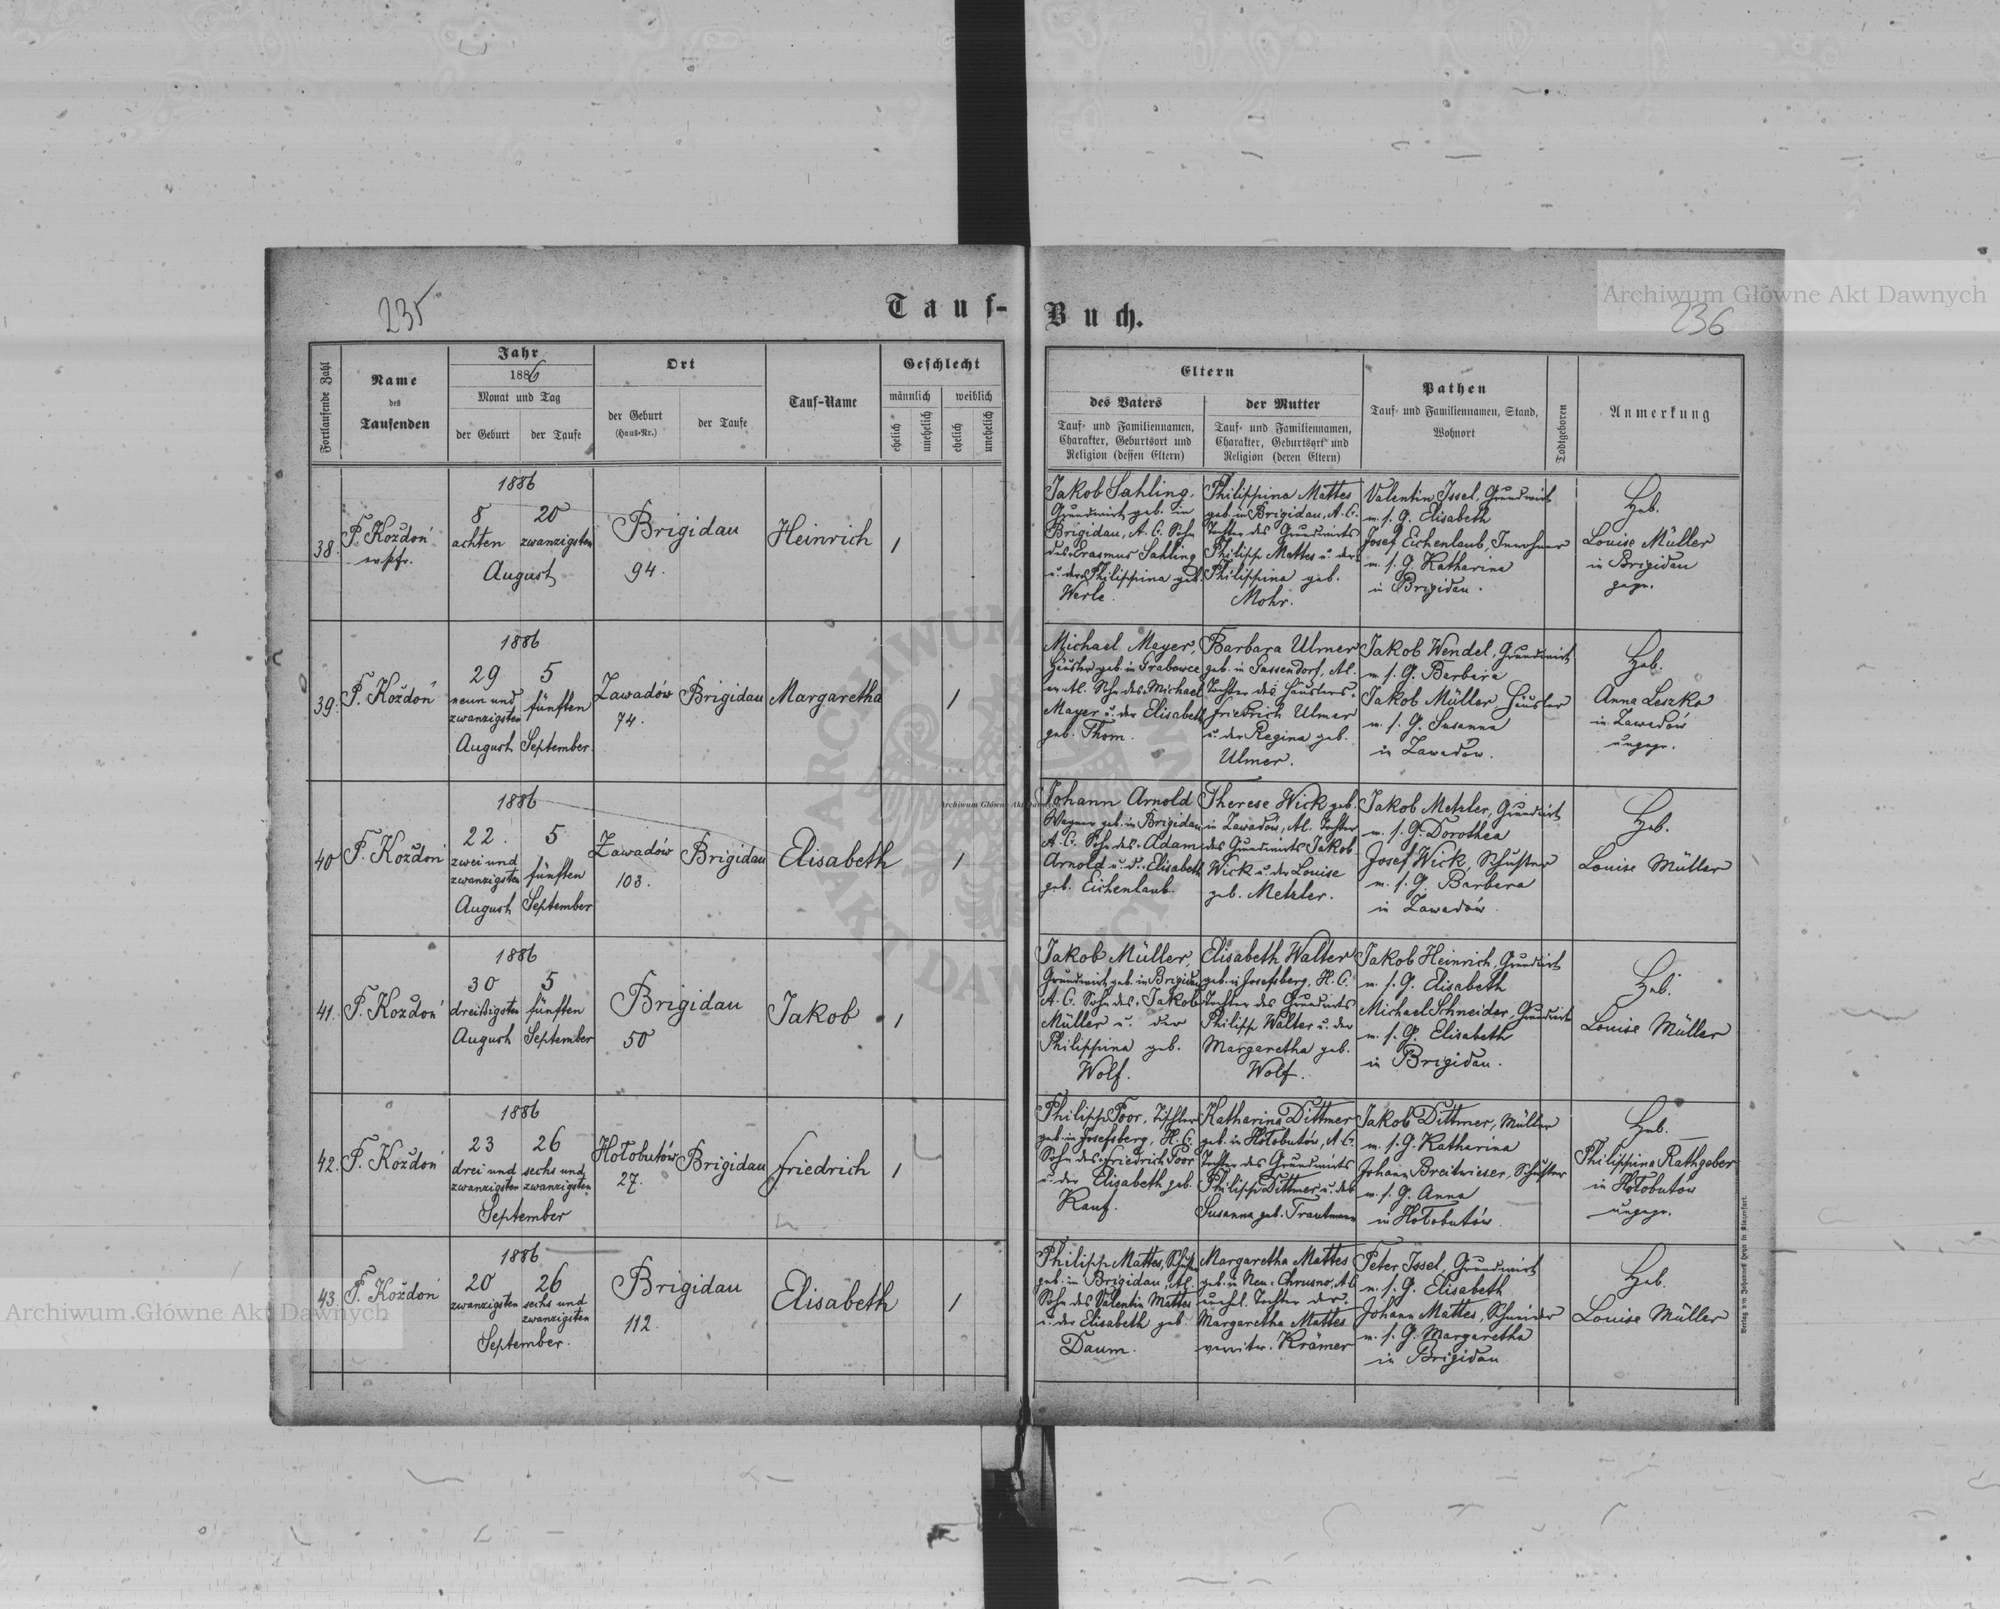 235
Tauf-
Buch.
236
Archiwum Główne Akt Dawnych
Fortlaufende Zahl
Name
des
Taufenden
Jahr
1886
Monat und Tag
der Geburt
der Taufe
Ort
der Geburt
(Haus-Nr.)
der Taufe
Tauf-Name
Geschlecht
männlich
weiblich
ehelich
unehelich
ehelich
unehelich
Eltern
des Vaters
Tauf- und Familiennamen,
Charakter, Geburtsort und
Religion (dessen Eltern)
der Mutter
Tauf- und Familiennamen,
Charakter, Geburtsort und
Religion (deren Eltern)
Pathen
Tauf- und Familiennamen, Stand,
Wohnort
Todtgeboren
Anmerkung
38.
F. Koždoń
1886
8
achten
20
zwanzigsten
August
Brigidau
94.
Heinrich
1
Jakob Sahling,
Grundwirt geb. in
Brigidau, A. C. Sohn
des Erasmus Sahling
u. der Philippina geb.
Werle.
Philippina Mattes
geb. in Brigidau, A. C.
Tochter des Grundwirts
Philipp Mattes u. der
Philippina geb.
Mohr.
Valentin Issel, Grundwirt
m. s. G. Elisabeth
Josef Eichenlaub, Inwohner
m. s. G. Katharina
in Brigidau.
Heb.
Louise Müller
in Brigidau
gepr.
39.
F. Koždoń
1886
29
neun und
zwanzigsten
August
5
fünften
September
Zawadów
74.
Brigidau
Margaretha
1
Michael Mayer,
Häusler geb. in Grabowce
Sohn des Michael
Mayer u. der Elisabeth
geb. Thom.
Barbara Ulmer
geb. in Gassendorf, A.C.
Tochter des Häuslers
Friedrich Ulmer
u. der Regina geb.
Ulmer.
Jakob Wendel, Grundwirt
m. s. G. Barbara
Jakob Müller, Häusler
m. s. G. Susanna
in Zawadów.
Heb.
Anna Leszko
in Zawadów
ungepr.
40
F. Koždoń
1886
22.
zwei und
zwanzigsten
August
5
fünften
September
Zawadów
103.
Brigidau
Elisabeth
1
Johann Arnold
Wagner geb. in Brigidau
A. C. Sohn des Adam
Arnold u. d. Elisabeth
geb. Eichenlaub.
Therese Wick geb.
in Zawadów, A.C. Tochter
des Grundwirts Jakob
Wick u. der Louise
geb. Metzler.
Jakob Metzler, Grundwirt
m. s. G. Dorothea
Josef Wick, Schuster
m. s. G. Barbara
in Zawadów.
Heb.
Louise Müller
41.
F. Koždoń
1886
30
dreißigsten
August
5
fünften
September
Brigidau
50
Jakob
1
Jakob Müller
Grundwirt geb. in Brigidau
A. C. Sohn des Jakob
Müller u. der
Philippina geb.
Wolf.
Elisabeth Walter
geb. in Josefsberg, H. C.
Tochter des Grundwirts
Philipp Walter u. der
Margaretha geb.
Wolf.
Jakob Heinrich, Grundwirt
m. s. G. Elisabeth
Michael Schneider, Grundwirt
m. s. G. Elisabeth
in Brigidau.
Heb.
Louise Müller
42.
F. Koždoń
1886
23
drei und
zwanzigsten
26
sechs und
zwanzigsten
September
Hołobutów
27.
Brigidau
Friedrich
1
Philipp Poor, Tischler
geb. in Josefsberg, H. C.
Sohn des Friedrich Poor
u. der Elisabeth geb.
Rauf.
Katharina Dittmer
geb. in Hołobutów, A. C.
Tochter des Grundwirts
Philipp Dittmer u. der
Susanna geb. Trautmann
Jakob Dittmer, Müller
m. s. G. Katharina
Johann Breitwieser, Schuster
m. s. G. Anna
in Hołobutów.
Heb.
Philippina Rathgeber
in Hołobutów
ungepr.
43.
F. Koždoń
1886
20
zwanzigsten
26
sechs und
zwanzigsten
September.
Brigidau
112.
Elisabeth
1
Philipp Mattes, Schuster
geb. in Brigidau, A.C.
Sohn des Valentin Mattes
u. der Elisabeth geb.
Daum.
Margaretha Mattes
geb. in Neu-Chrusno, A.C.
unehl. Tochter der
Margaretha Mattes
verwitw. Krämer
Peter Issel, Grundwirt
m. s. G. Elisabeth
Johann Mattes, Schneider
m. s. G. Margaretha
in Brigidau
Heb.
Louise Müller
Verlag von Johannes Heyn in Klagenfurt.
Archiwum Główne Akt Dawnych
Archiwum Główne Akt Dawnych
ARCHIWUM
AKT DAWNYCH